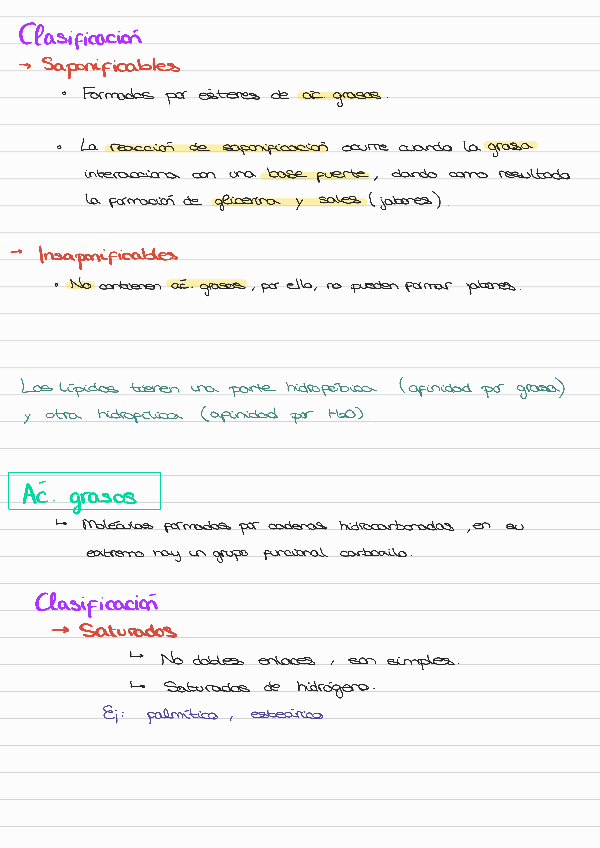 Clasificación
→ Saponificables
• Formados por ésteres de ác. grasos.
• La reacción de saponificación ocurre cuando la grasa
interacciona con una base fuerte, dando como resultado
la formación de glicerina y sales (jabones).
→ Insaponificables
• No contienen ác. grasos, por ello, no pueden formar jabones.
Los lípidos tienen una parte hidrofóbica (afinidad por grasa)
y otra hidrofílica (afinidad por H2O)
Ác. grasos
↳ Moléculas formadas por cadenas hidrocarbonadas, en su
extremo hay un grupo funcional carboxilo.
Clasificación
→ Saturados
↳ No dobles enlaces, son simples.
↳ Saturados de hidrógeno.
Ej: palmítico, esteárico